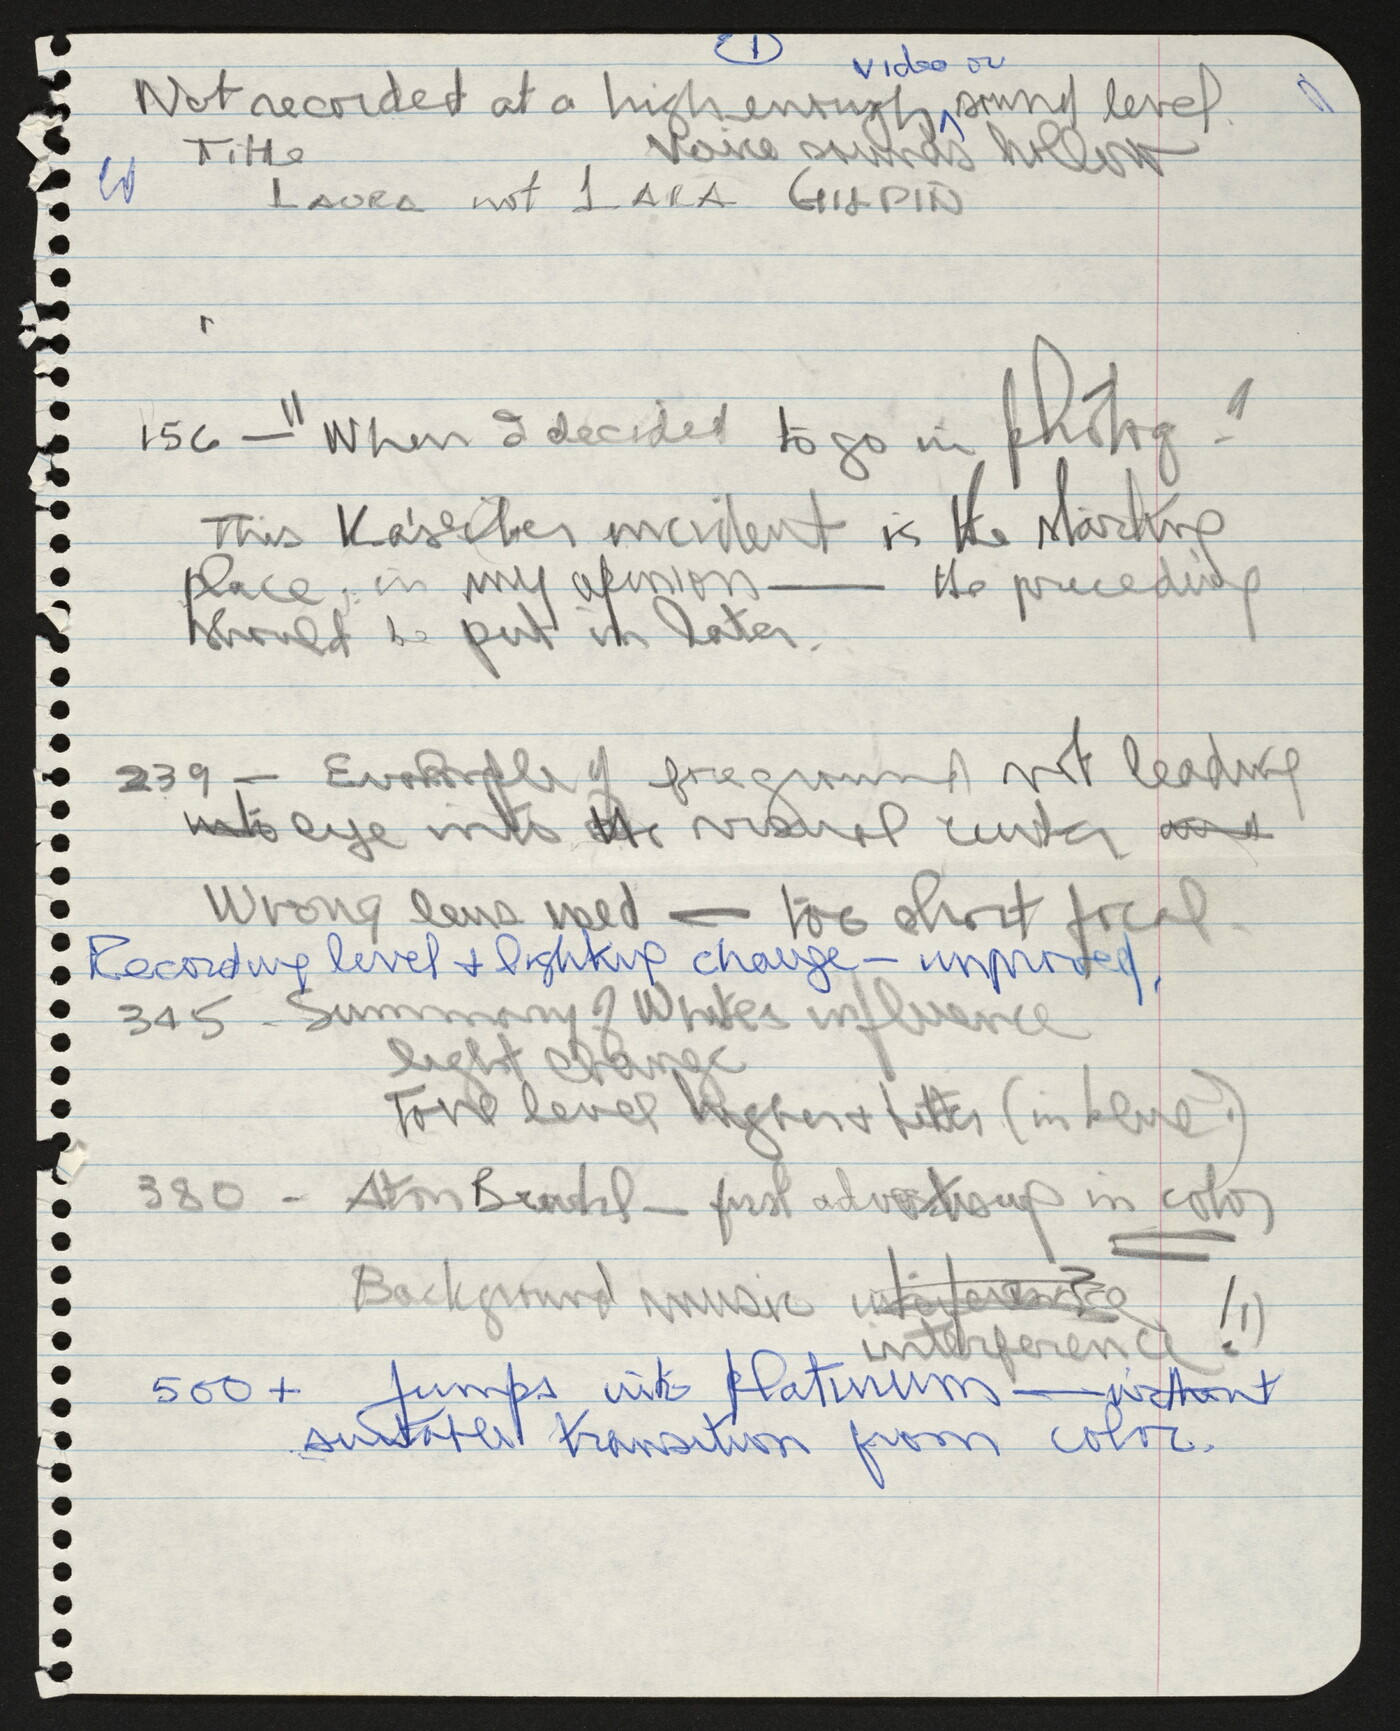 1
video or
Not recorded at a high enough ^ sound level.
Title Voice sounds hollow
LAURA not LARA GILPIN
156 — " When I decided to go in photog - "
This Käsebier incident is the starting
place, in my opinion — the preceding
should be put in later.
239 — Example of foreground not leading
into eye into the visual center and
Wrong lens used — too short focal.
Recording level + lighting change — improved.
345 - Summary of White's influence
light change
Tone level higher + better (in blue?)
380 - Anton Bruehl — first advertising in color
Background music interference
interference !!)
500 + Jumps into platinum — without
suitable transition from color.